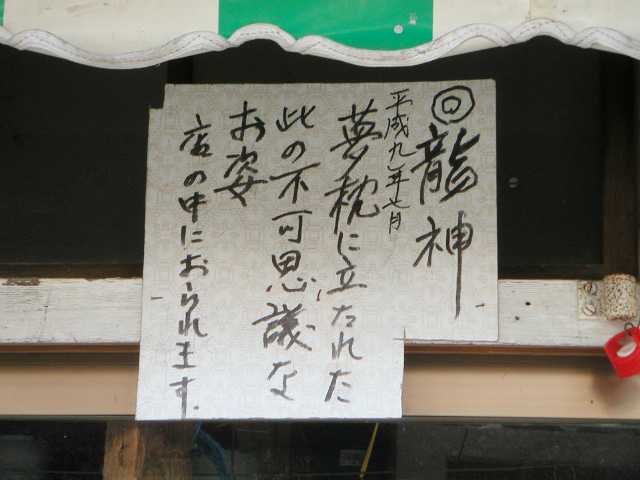 龍神
平成九年七月
夢枕に立たれた
此の不可思議な
お姿
店の中におられます.